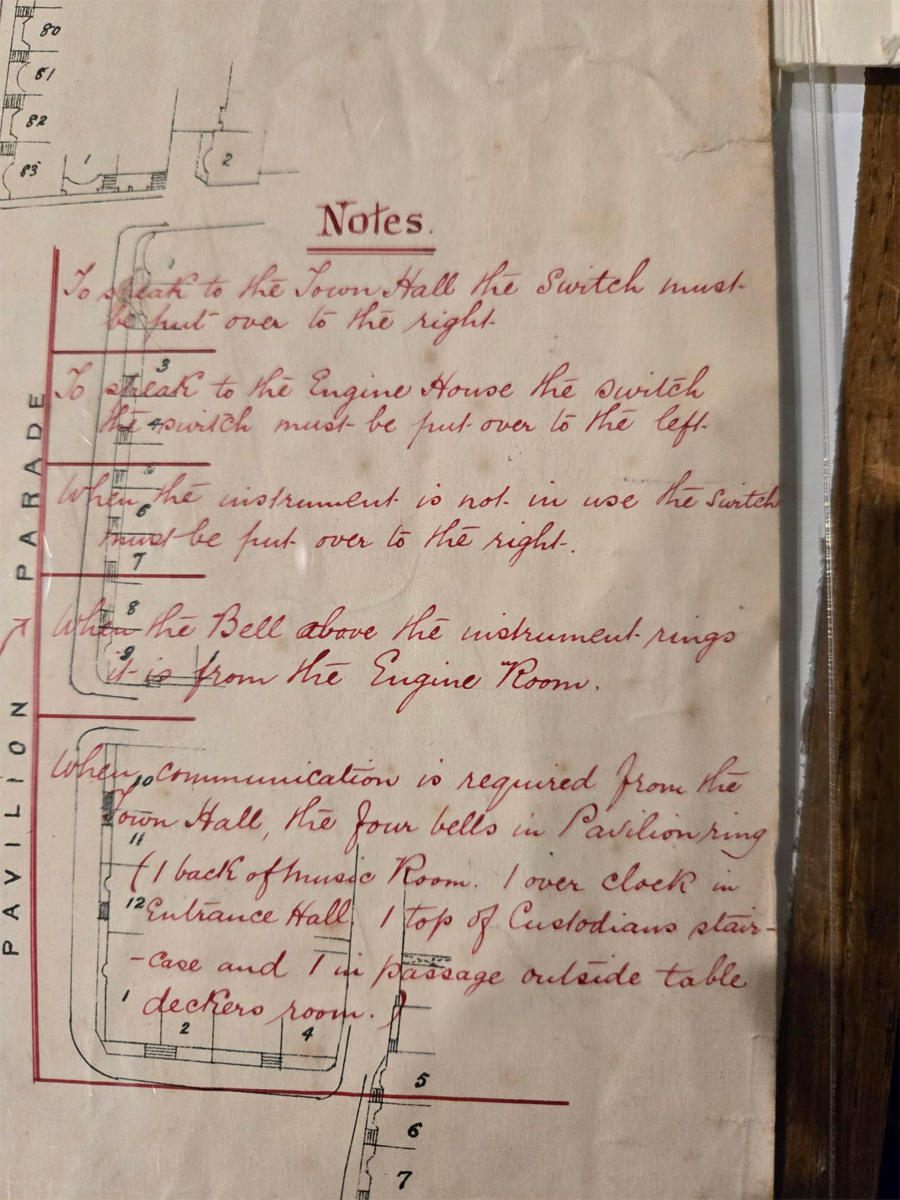 80
81
82
83
1
2
Notes.
To speak to the Town Hall the Switch must
be put over to the right
3
To speak to the Engine House the switch
the switch must be put over to the left
4
5
When the instrument is not in use the Switch
6
must be put over to the right.
7
8
When the Bell above the instrument rings
9
it is from the Engine Room.
PAVILION PARADE
When communication is required from the
10
Town Hall, the four bells in Pavilion ring
11
(1 back of music Room. 1 over clock in
12
Entrance Hall 1 top of Custodians stair-
-case and 1 in passage outside table
1
deckers room.)
2
4
5
6
7